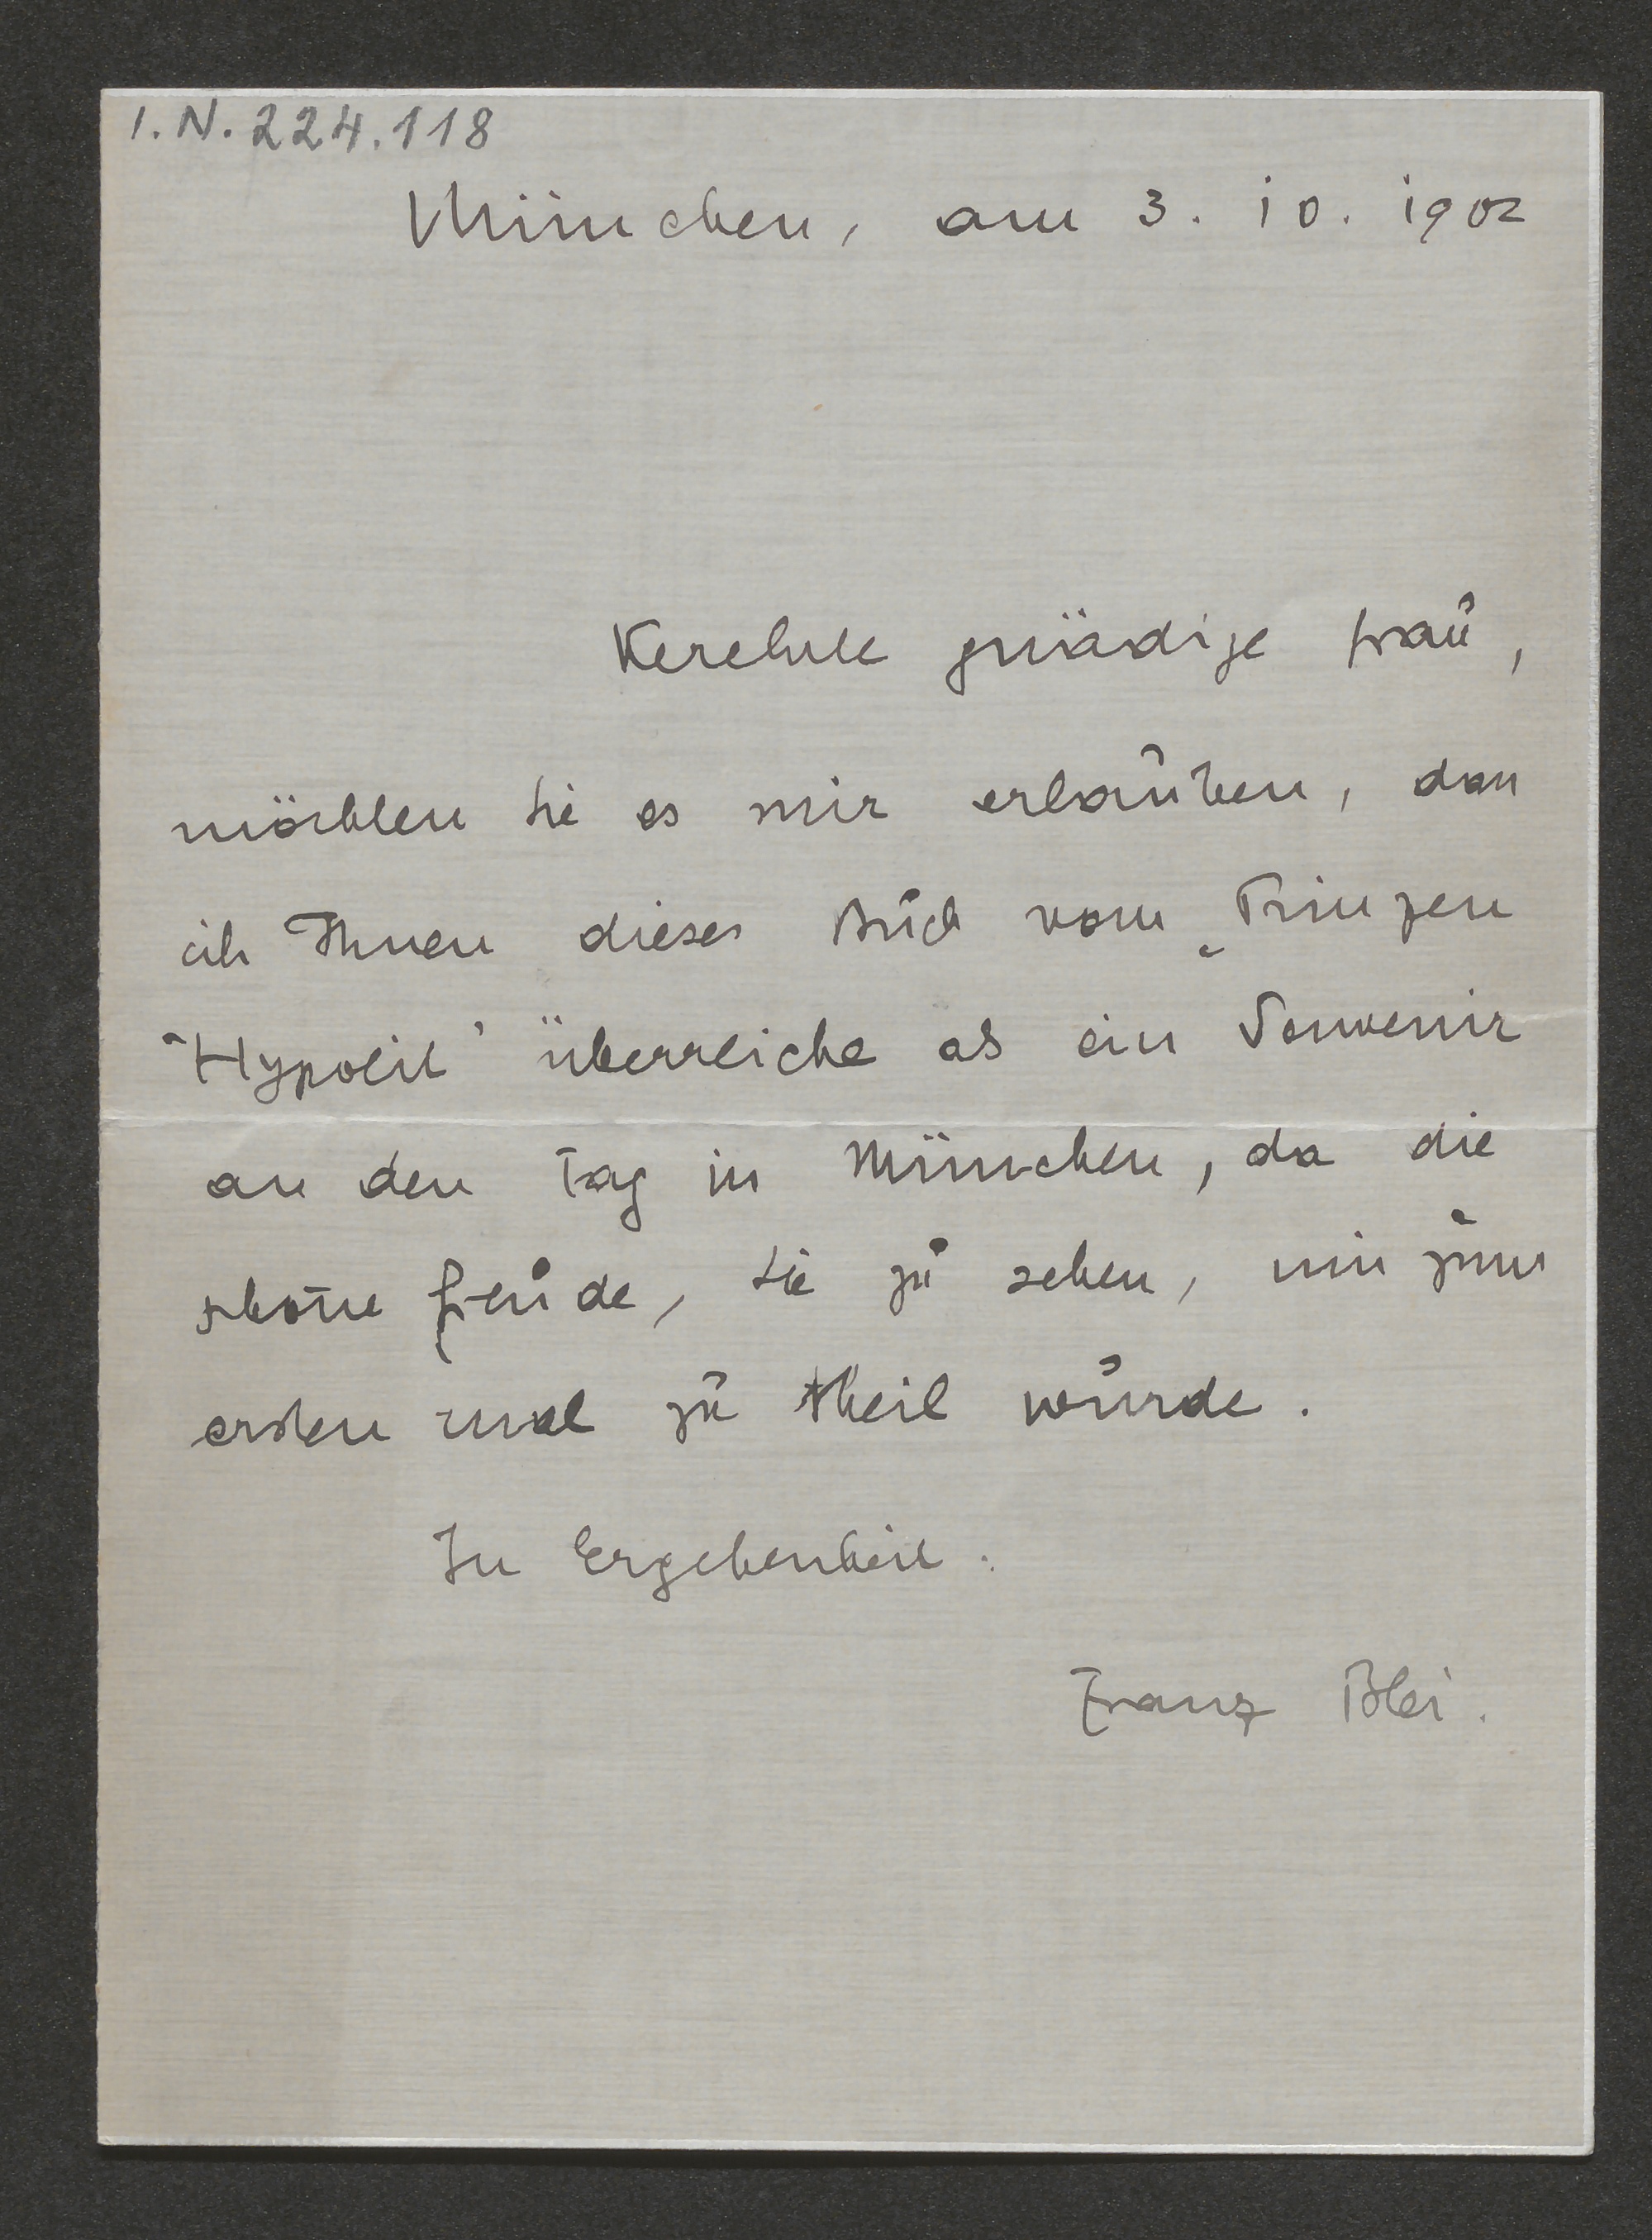 I.N. 224.118
München, am 3. 10. 1902
Verehrte gnädige Frau,
möchten Sie es mir erlauben, dass
ich Ihnen dieses Buch vom „Prinzen
"Hypolit" überreiche als ein Souvenir
an den Tag in München, da die
schöne Freude, Sie zu sehen, mir zum
ersten mal zu theil wurde.
In Ergebenheit:
Franz Blei.